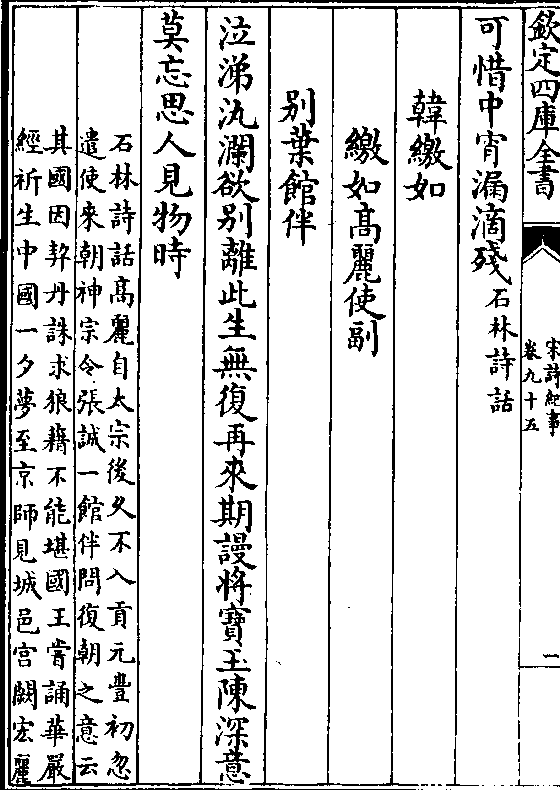 欽定四庫全書
宋詩紀事
卷九十五
一
可惜中宵漏滴殘石林詩話
韓繳如
繳如高麗使副
别葉館伴
泣涕汍瀾欲别離此生無復再來期謾將寶玉陳深意
莫忘思人見物時
石林詩話高麗自太宗後久不入貢元豐初忽
遣使來朝神宗令張誠一館伴問復朝之意云
其國因契丹誅求狼藉不能堪國王嘗誦華嚴
經祈生中國一夕夢至京師見城邑宫闕宏麗